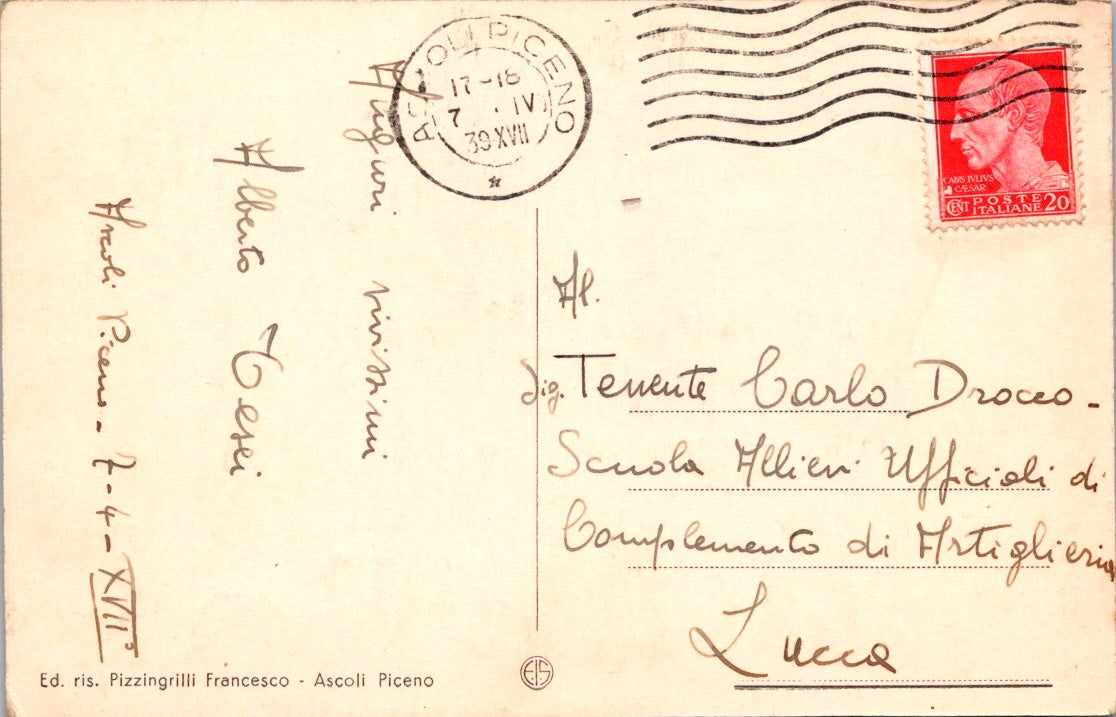 ASCOLI PICENO
17-18
7 · IV
39·XVII
CAIVS IVLIVS
CÆSAR
CENT POSTE
ITALIANE 20
Auguri vivissimi
Alberto Tesei
Ascoli Piceno - 7-4-XVII°
Al.
Sig. Tenente Carlo Drocco -
Scuola Allievi Ufficiali di
Complemento di Artiglieria
Lucca
Ed. ris. Pizzingrilli Francesco - Ascoli Piceno
EIS